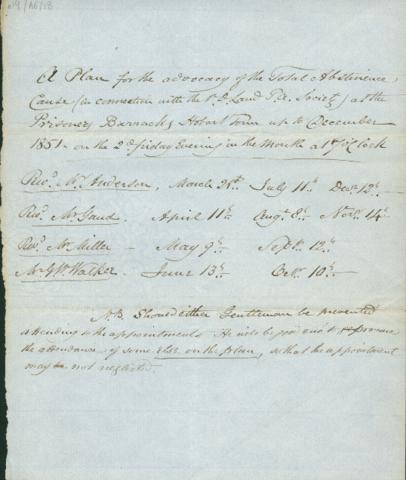 A Plan for the advocacy of the Total Abstinence
Cause (in connection with the V.D. Land Tee. Society) at the
Prisoners Barracks, Hobart Town up to December
1851 - on the 2d friday Evening in the Month at 7 o'Clock
Revd. Mr. Anderson, March 21st. July 11th. Decr. 12th.
Revd. Mr. Gaud. April 11th. Augt. 8th. Novr. 14th.
Revd. Mr. Miller - May 9th. - Sept. 12th.
Mr. G W Walker. June 13th. - Octr. 10th. -
N.B. Should either Gentleman be prevented
attending to the appointments He is to be good eno' to procure
the attendance of some else on the plan, so that the appointment
may be not neglected.